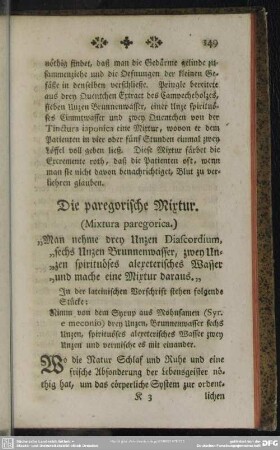 149
nöthig findet, daß man die Gedärme gelinde zu-
sammenziehe und die Oefnungen der kleinen Ge-
fäße in denselben verschliesse. Pringle bereitete
aus drey Quentchen Extract des Campecheholzes,
sieben Unzen Brunnenwasser, einer Unze spirituö-
ses Cimmtwasser und zwey Quentchen von der
Tinctura iaponica eine Mixtur, wovon er dem
Patienten in vier oder fünf Stunden einmal zwey
Löffel voll geben ließ. Diese Mixtur färbet die
Excremente roth, daß die Patienten oft, wenn
man sie nicht davon benachrichtiget, Blut zu ver-
liehren glauben.
Die paregorische Mixtur.
(Mixtura paregorica.)
„Man nehme drey Unzen Diascordium,
„sechs Unzen Brunnenwasser, zwey Un-
„zen spirituöses alexeterisches Wasser
„und mache eine Mixtur daraus.„
In der lateinischen Vorschrift stehen folgende
Stücke:
Nimm von dem Syrup aus Mohnsamen (Syr.
e meconio) drey Unzen, Brunnenwasser sechs
Unzen, spirituöses alexeterisches Wasser zwey
Unzen und vermische es mit einander.
Wo die Natur Schlaf und Ruhe und eine
frische Absonderung der Lebensgeister nö-
thig hat, um das körperliche System zur ordent-
K 3 lichen